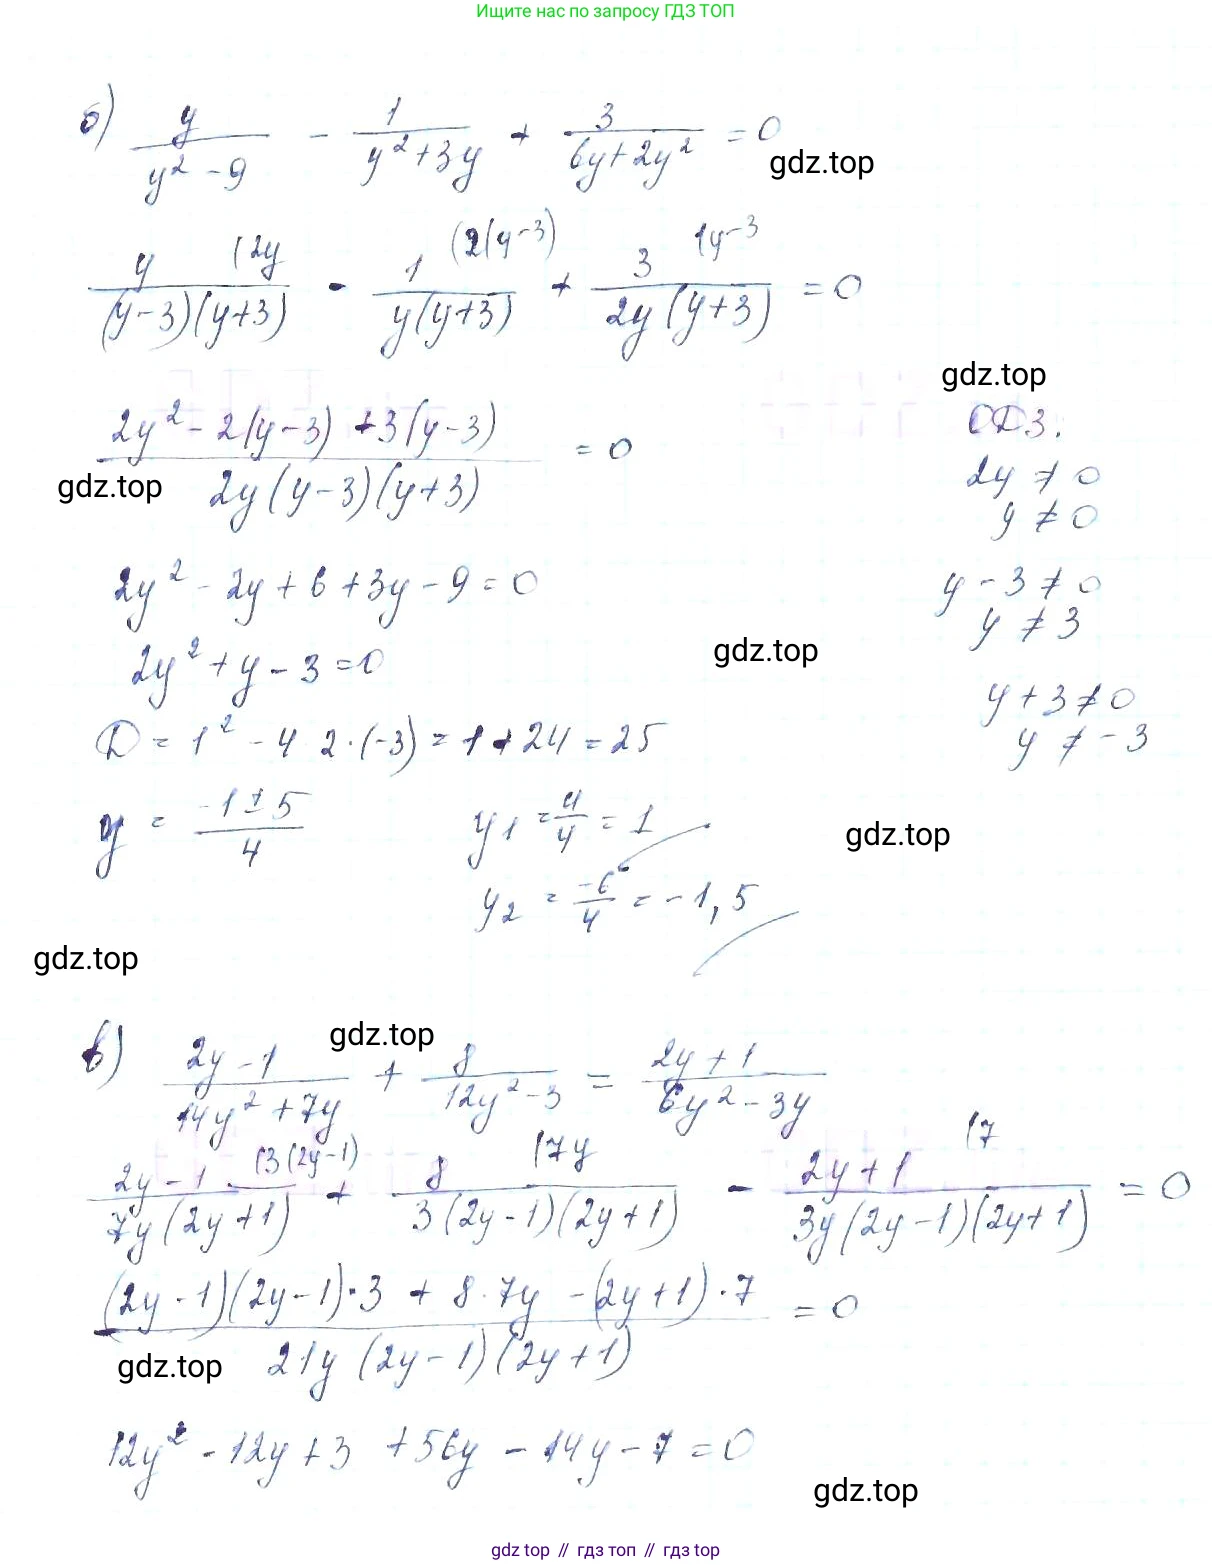 Ищите нас по запросу ГДЗ ТОП
б) y/(y² - 9) - 1/(y² + 3y) + 3/(6y + 2y²) = 0
gdz.top
y/((y-3)(y+3)) (2y - 1/(y(y+3)) (2(y-3) + 3/(2y(y+3)) (y-3 = 0
gdz.top
(2y² - 2(y-3) + 3(y-3))/(2y(y-3)(y+3)) = 0
ОДЗ:
gdz.top
2y ≠ 0
y ≠ 0
2y² - 2y + 6 + 3y - 9 = 0
y - 3 ≠ 0
y ≠ 3
2y² + y - 3 = 0
gdz.top
y + 3 ≠ 0
y ≠ -3
D = 1² - 4 2·(-3) = 1 + 24 = 25
y = (-1 ± 5)/4
y1 = 4/4 = 1
gdz.top
y2 = -6/4 = -1,5
gdz.top
в) (2y - 1)/(14y² + 7y) + 8/(12y² - 3) = (2y + 1)/(6y² - 3y)
gdz.top
(2y - 1)/(7y(2y+1)) (3(2y-1) + 8/(3(2y-1)(2y+1)) (7y - (2y+1)/(3y(2y-1)(2y+1)) (7 = 0
((2y-1)(2y-1)·3 + 8·7y - (2y+1)·7)/(21y(2y-1)(2y+1)) = 0
gdz.top
12y² - 12y + 3 + 56y - 14y - 7 = 0
gdz.top
gdz top // гдз топ // gdz top